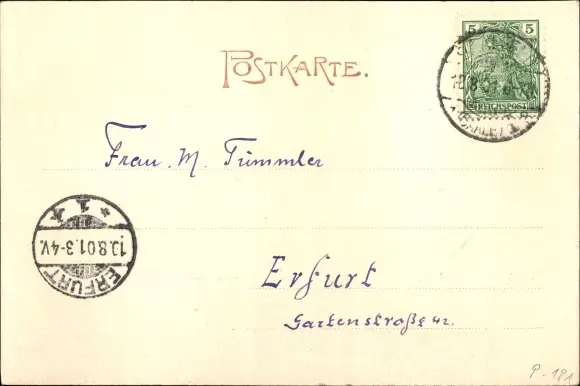 5 5
REICHSPOST
(SAALE)
POSTKARTE.
Frau. M. Tümmler
* 1 k
13.8.01.3-4V.
ERFURT
Erfurt
Gartenstraße 42.
P-181